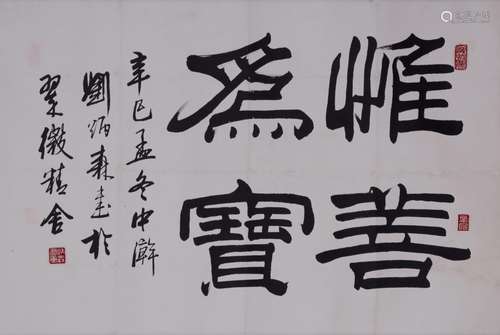 惟善
為寶
辛巳孟冬中澣
劉炳森書於
翠微精舍